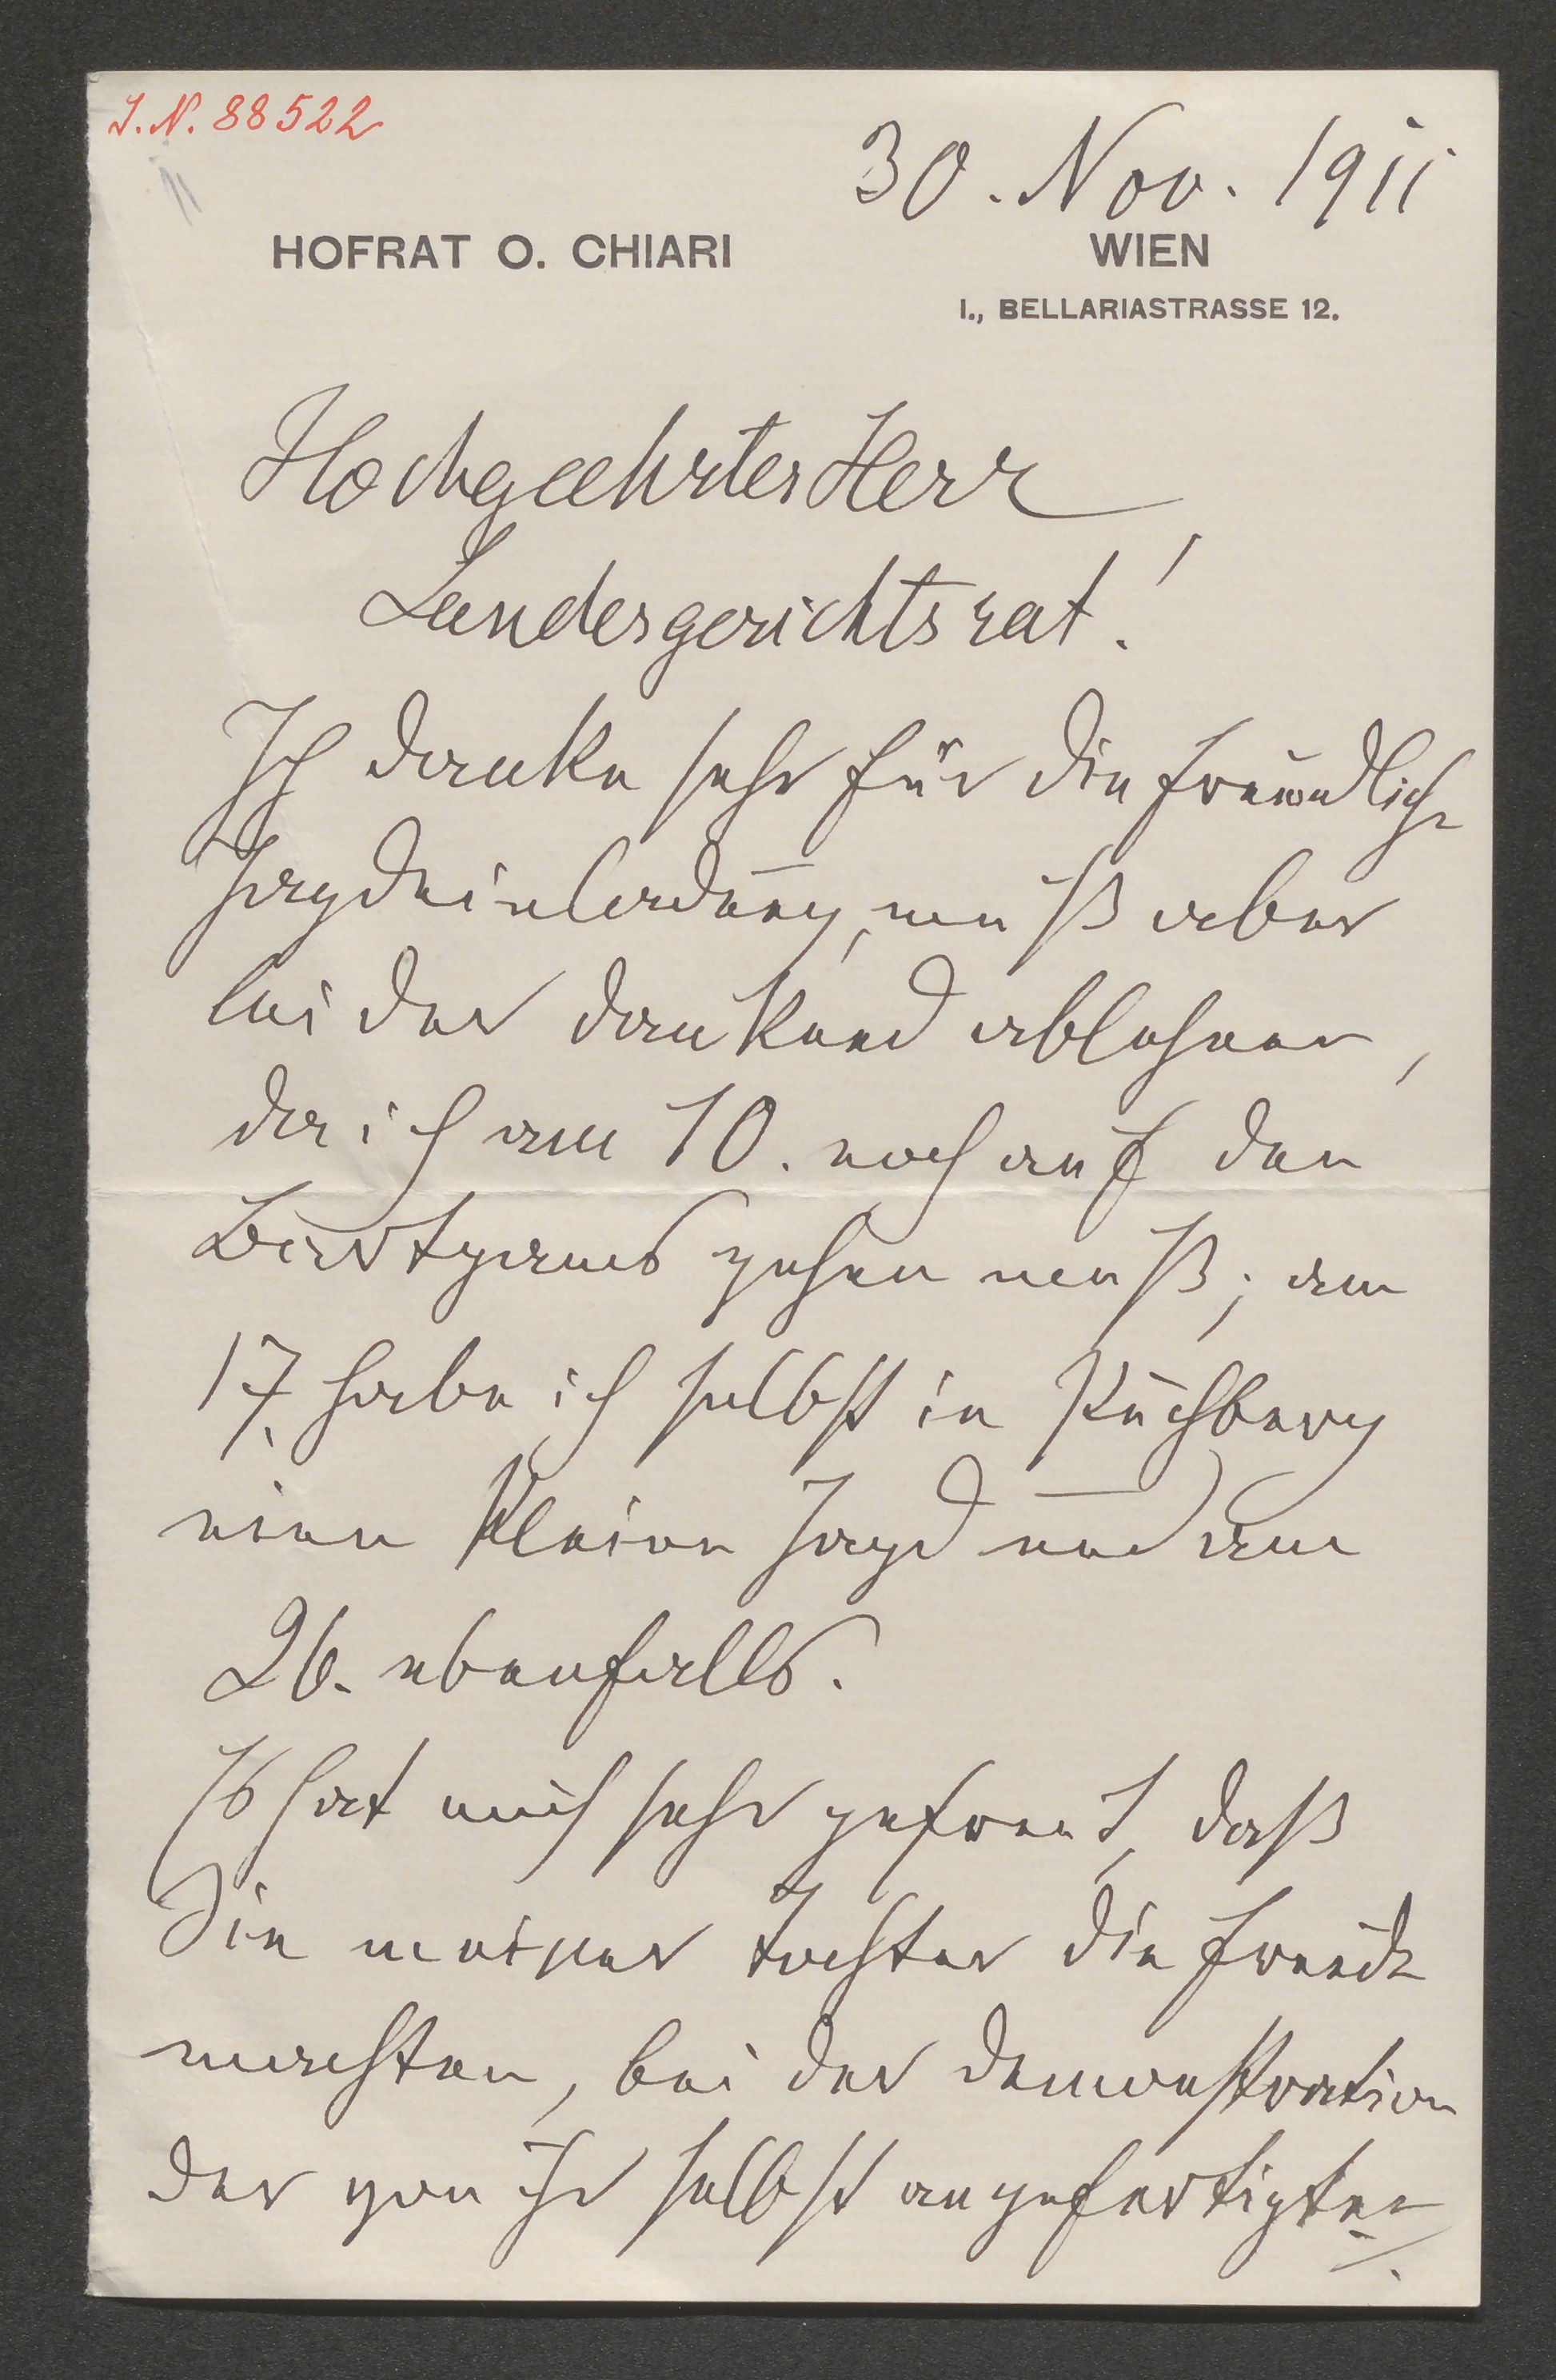 I. N. 88522
30. Nov. 1911
HOFRAT O. CHIARI
WIEN
I., BELLARIASTRASSE 12.
Hochgeehrter Herr
Landesgerichtsrat!
Ich danke sehr für die freundliche
Jagdeinladung, muß aber
leider dankend ablehnen,
da ich am 10. noch auf den
gehen muß; am
17. habe ich selbst in Puchberg
eine kleine Jagd und am
26. ebenfalls.
Es hat mich sehr gefreut, daß
Sie meiner Tochter die Freude
machten, bei der Demonstration
der von ihr selbst angefertigten